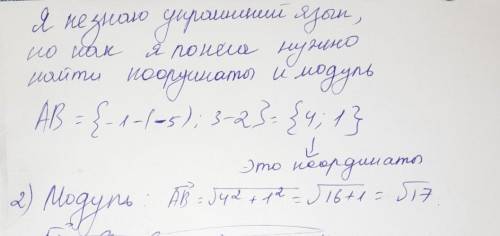 Я не знаю украинский язык,
но как я поняла нужно
найти координаты и модуль
AB = {-1-(-5); 3-2} = {4; 1}
↓
это координаты
2) Модуль: AB = √4² + 1² = √16+1 = √17.